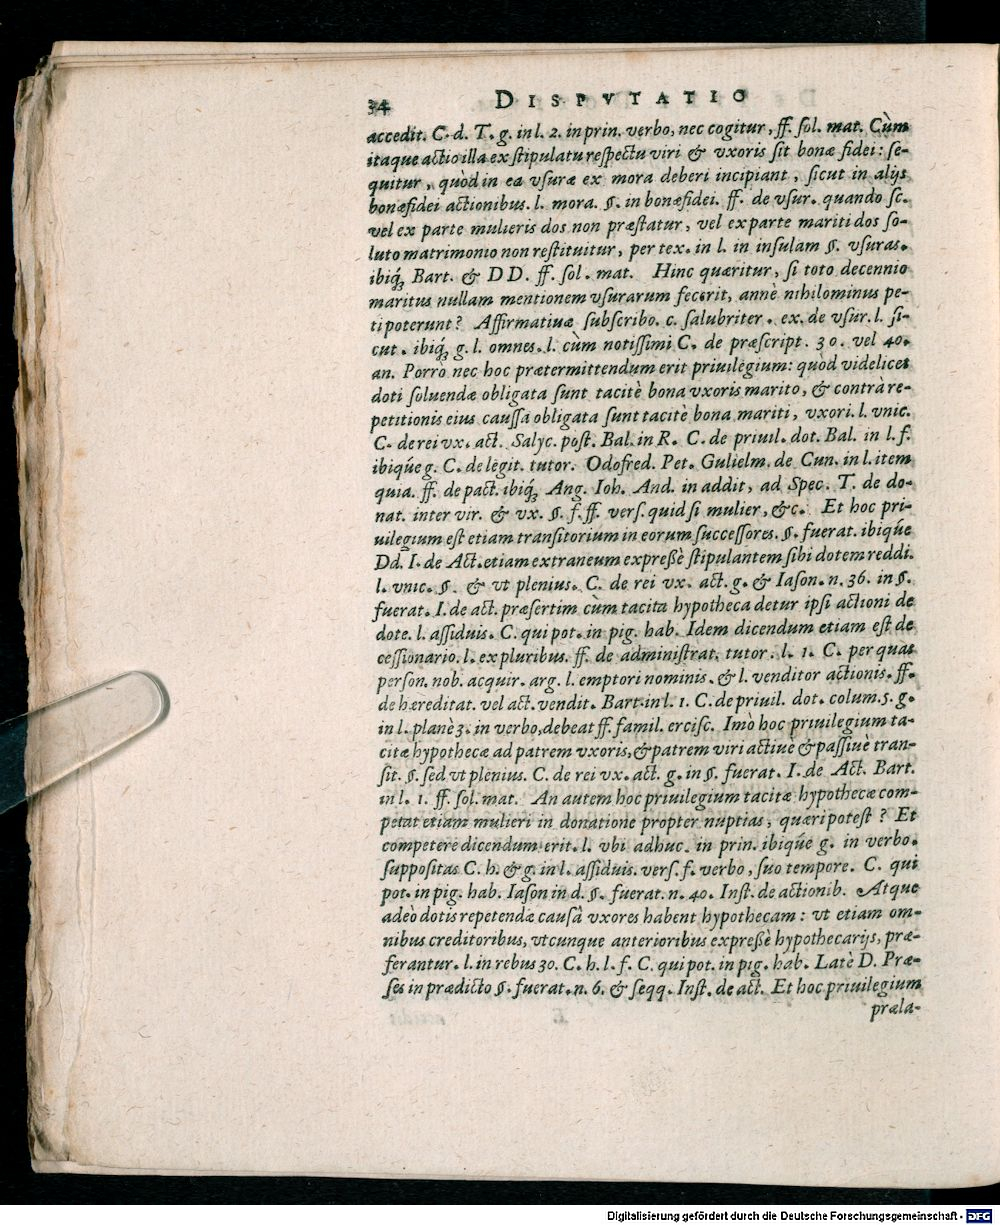 34 DISPVTATIO
accedit. C. d. T. g. in l. 2. in prin. verbo, nec cogitur, ff. ſol. mat. Cùm
itaque actio illa ex ſtipulatu reſpectu viri & vxoris ſit bonæ fidei: ſe-
quitur, quòd in ea vſuræ ex mora deberi incipiant, ſicut in alijs
bonæfidei actionibus. l. mora. §. in bonæfidei. ff. de vſur. quando ſc.
vel ex parte mulieris dos non præſtatur, vel ex parte mariti dos ſo-
luto matrimonio non reſtituitur, per tex. in l. in inſulam §. vſuras.
ibiq́ꝫ Bart. & DD. ff. ſol. mat. Hinc quæritur, ſi toto decennio
maritus nullam mentionem vſurarum fecerit, annè nihilominus pe-
ti poterunt? Affirmatiuæ ſubſcribo. c. ſalubriter. ex. de vſur. l. ſi-
cut. ibiq́ꝫ g. l. omnes. l. cùm notiſſimi C. de præſcript. 30. vel 40.
an. Porrò nec hoc prætermittendum erit priuilegium: quòd videlicet
doti ſoluendæ obligata ſunt tacitè bona vxoris marito, & contrà re-
petitionis eius cauſſa obligata ſunt tacitè bona mariti, vxori. l. vnic.
C. de rei vx. act. Salyc. poſt. Bal. in R. C. de priuil. dot. Bal. in l. f.
ibiq́ue g. C. de legit. tutor. Odofred. Pet. Gulielm. de Cun. in l. item
quia. ff. de pact. ibiq́ꝫ Ang. Ioh. And. in addit, ad Spec. T. de do-
nat. inter vir. & vx. §. f. ff. verſ. quid ſi mulier, &c. Et hoc pri-
uilegium eſt etiam tranſitorium in eorum ſucceſſores. §. fuerat. ibiq́ue
Dd. I. de Act. etiam extraneum expreßè ſtipulantem ſibi dotem reddi.
l. vnic. §. & vt plenius. C. de rei vx. act. g. & Iaſon. n. 36. in §.
fuerat. I. de act. præſertim cùm tacita hypotheca detur ipſi actioni de
dote. l. aſſiduis. C. qui pot. in pig. hab. Idem dicendum etiam eſt de
ceſſionario. l. ex pluribus. ff. de adminiſtrat. tutor. l. 1. C. per quas
perſon. nob. acquir. arg. l. emptori nominis. & l. venditor actionis. ff.
de hæreditat. vel act. vendit. Bart. in l. 1. C. de priuil. dot. colum. 5. g.
in l. planè 3. in verbo, debeat ff. famil. erciſc. Imò hoc priuilegium ta-
citæ hypothecæ ad patrem vxoris, & patrem viri actiue & paſſiuè tran-
ſit. §. ſed vt plenius. C. de rei vx. act. g. in §. fuerat. I. de Act. Bart.
in l. 1. ff. ſol. mat. An autem hoc priuilegium tacitæ hypothecæ com-
petat etiam mulieri in donatione propter nuptias, quæri poteſt? Et
competere dicendum erit. l. vbi adhuc. in prin. ibiq́ue g. in verbo.
ſuppoſitas C. h. & g. in l. aſſiduis. verſ. f. verbo, ſuo tempore. C. qui
pot. in pig. hab. Iaſon in d. §. fuerat. n. 40. Inſt. de actionib. Atque
adeò dotis repetendæ cauſâ vxores habent hypothecam: vt etiam om-
nibus creditoribus, vtcunque anterioribus expreßè hypothecarijs, præ-
ferantur. l. in rebus 30. C. h. l. f. C. qui pot. in pig. hab. Latè D. Præ-
ſes in prædicto §. fuerat. n. 6. & ſeqq. Inſt. de act. Et hoc priuilegium
præla-
Digitalisierung gefördert durch die Deutsche Forschungsgemeinschaft - DFG